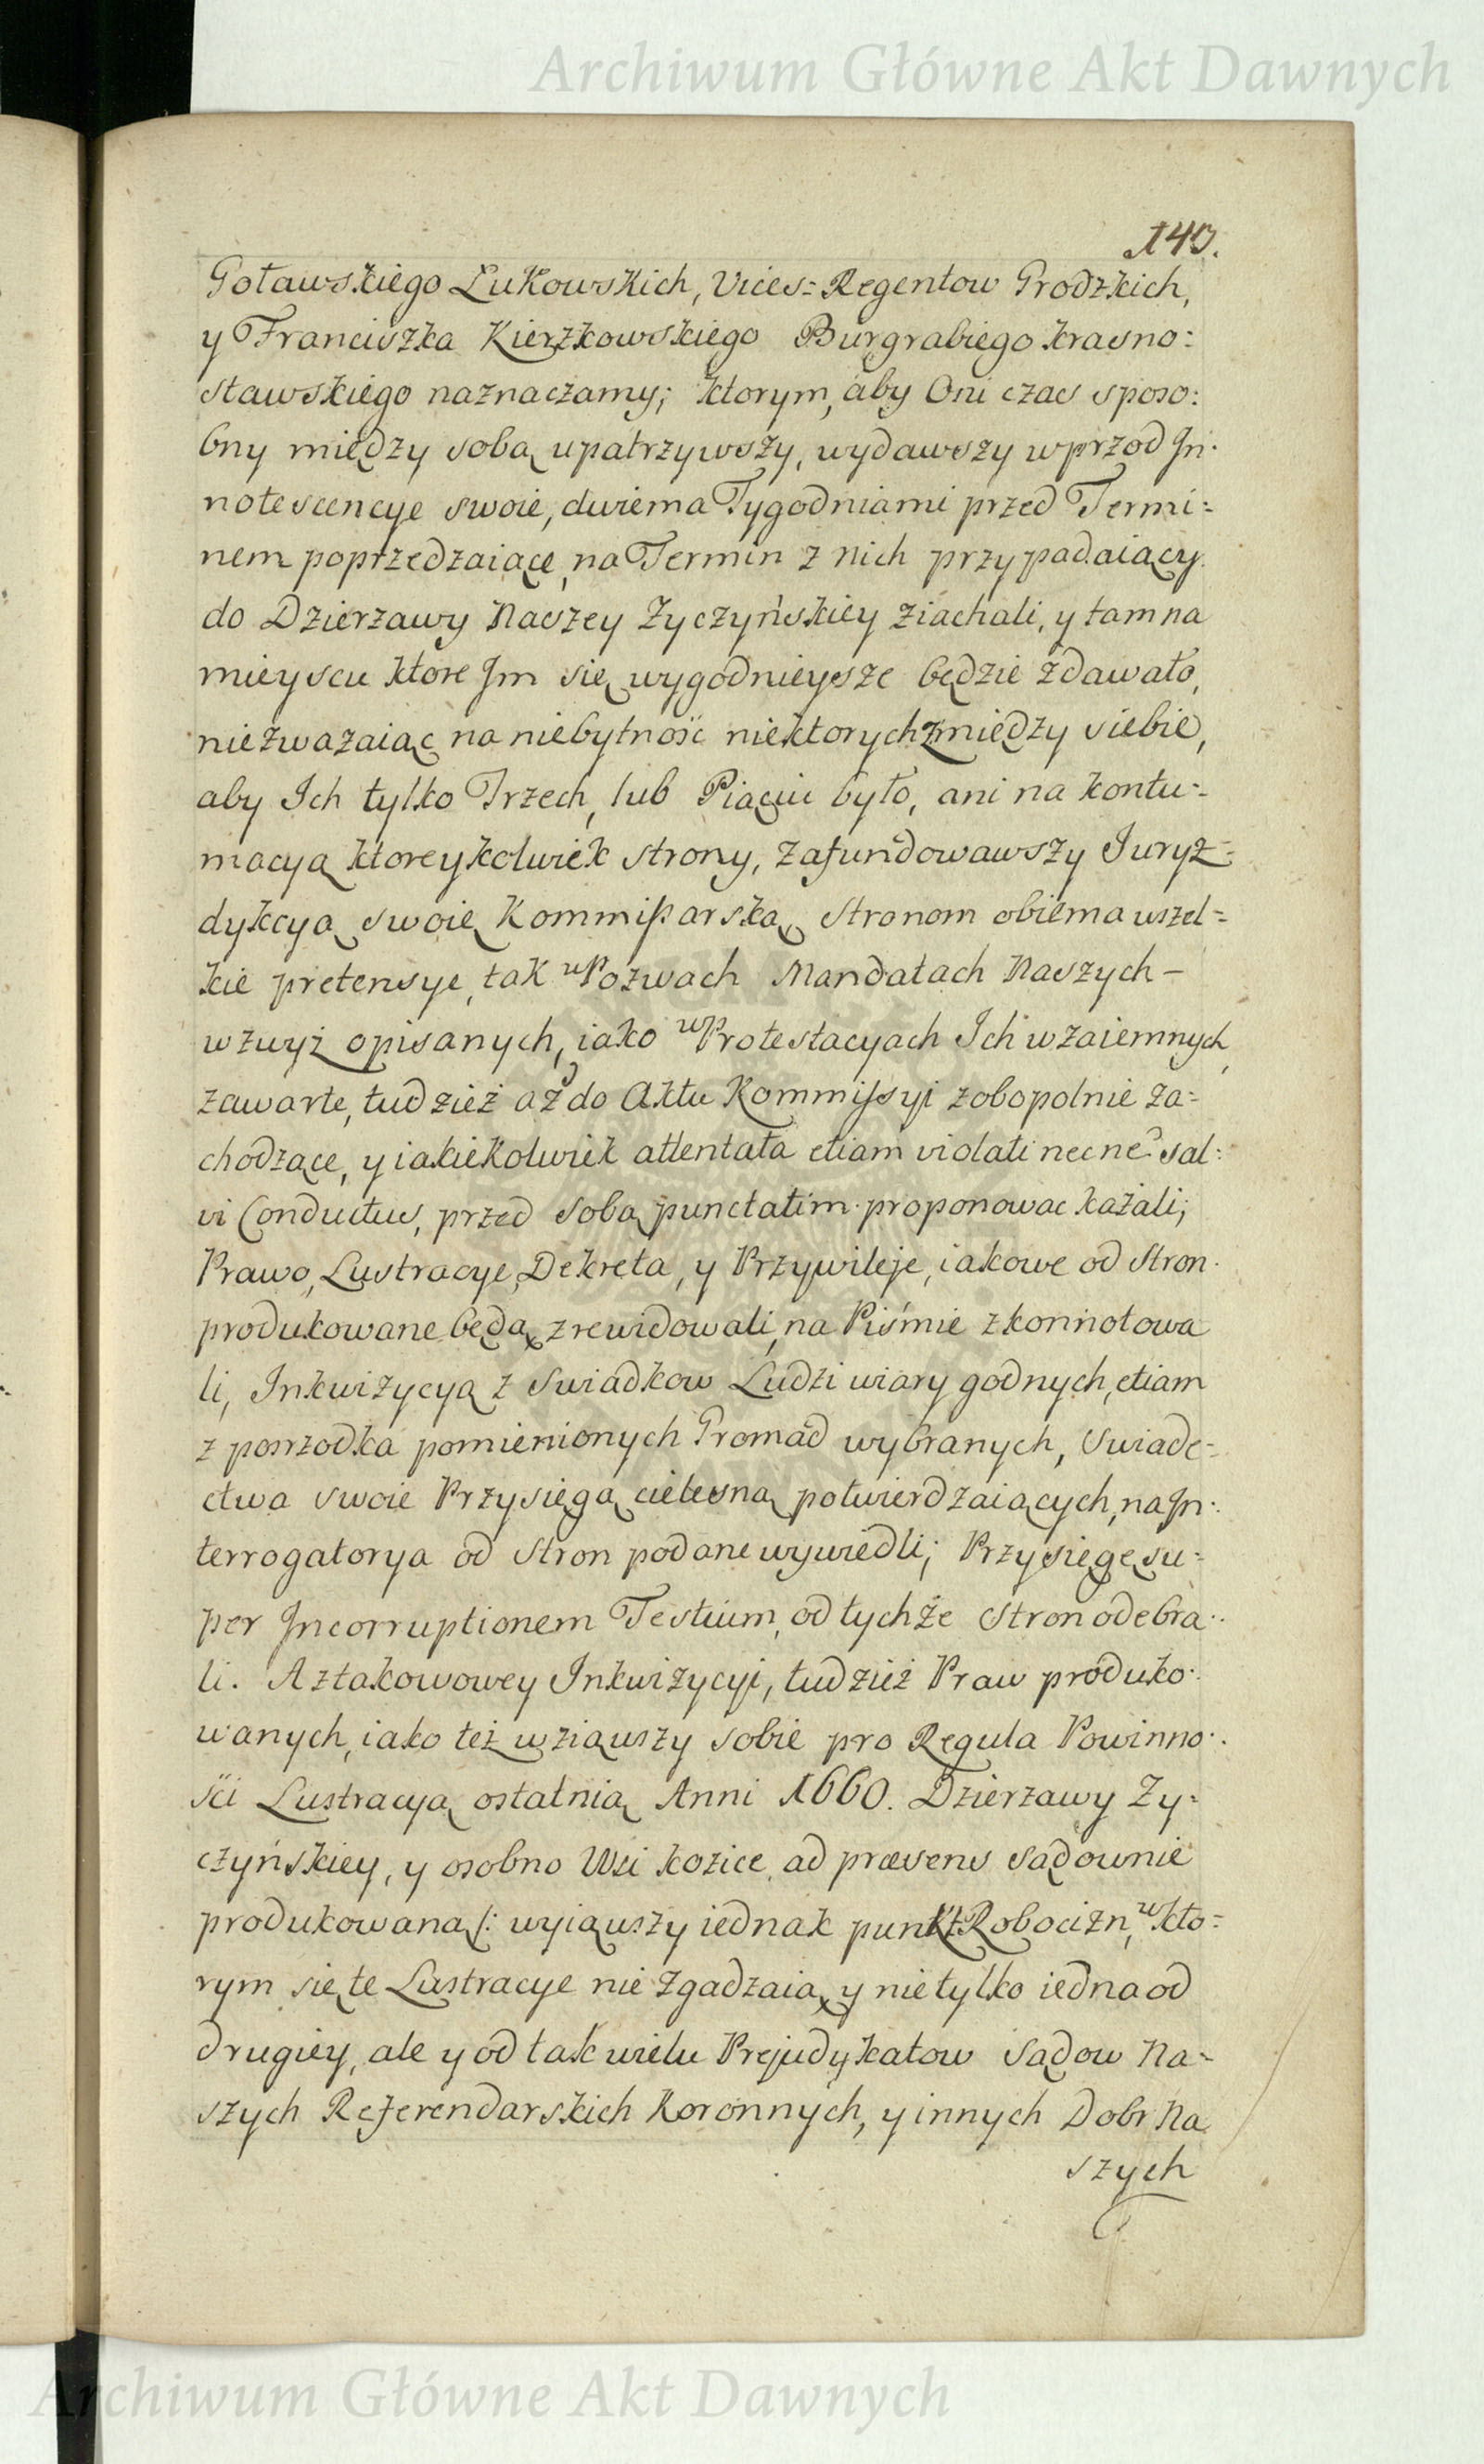 Archiwum Główne Akt Dawnych
140.
Goławskiego Łukowskich, Vices=Regentow Grodzkich,
y Franciszka Kierzkowskiego Burgrabiego krasno=
stawskiego naznaczamy; ktorym, aby Oni czas sposo=
bny między sobą upatrzywszy, wydawszy wprzod In=
notescencye swoie, dwiema Tygodniami przed Termi=
nem poprzedzaiące, na Termin z nich przypadaiący
do Dzierzawy Naszey Zyczyńskiey ziachali, y tam na
mieyscu ktore Im się wygodnieysze będzie zdawało,
niezwazaiąc na niebytność niektorych zmiędzy siebie,
aby Ich tylko Trzech, lub Piąciu było, ani na kontu=
macyą ktoreykolwiek strony, zafundowawszy Juryz=
dykcyą swoię Kommißarską, Stronom obiema wszel=
kie pretensye, tak w Pozwach Mandatach Naszych –
wzwyż opisanych, iako w Protestacyach Ich wzaiemnych,
zawarte, tudzież aż do Aktu Kommissyi zobopolnie za=
chodzące, y iakiekolwiek attentata etiam violati nec ne sal=
vi Conductus, przed sobą punctatim proponowac kazali;
Prawo, Lustracye, Dekreta, y Przywileje, iakowe od Stron
produkowane będą, zrewidowali, na Piśmie zkonnotowa
li, Inkwizycyą z Swiadkow Ludzi wiary godnych, etiam
z posrzodka pomienionych Gromad wybranych, Swiade=
ctwa swoie Przysięgą cielesną potwierdzaiących, na In=
terrogatorya od Stron podane wywiedli; Przysięgę su=
per Incorruptionem Testium, od tychże Stron odebra=
li. A z takowowey Inkwizycyi, tudzież Praw produko=
wanych, iako też wziąwszy sobie pro Regula Powinno=
ści Lustracyą ostatnią Anni 1660. Dzierzawy Zy=
czyńskiey, y osobno Wsi kozice, ad præsens sądownie
produkowaną /: wyiąwszy iednak punkt Robocizn, w kto=
rym się te Lustracye nie zgadzaią, y nie tylko iedna od
drugiey, ale y od tak wielu Prejudykatow Sądow Na=
szych Referendarskich Koronnych, y innych Dobr Na
szych
Archiwum Główne Akt Dawnych